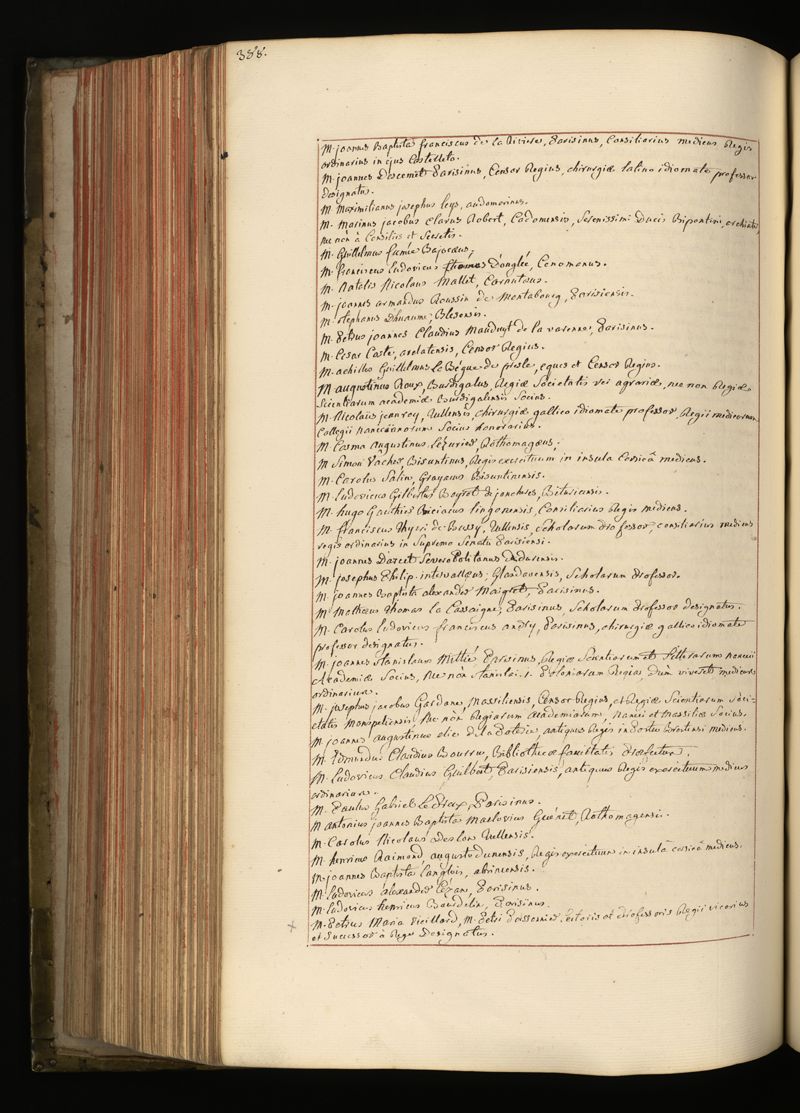 388.
M. joannes Baptista franciscus de la Riviere, Parisinus, Consiliarius medicus Regis
ordinarius in ejus Castelleto.
M. joannes Descemet Parisinus, Censor Regius, chirurgiæ latino idiomate professor
designatus.
M. Maximilianus josephus Leys, audomarinus.
M. Marinus jacobus Clarus Robert, Cadomensis, Serenissimi Ducis Bipontini, archiater
nec non à Consiliis et Secretis.
M. Guillelmus fumée Bajocæus,
M. franciscus Ludovicus thomas D'onglée, Cenomanus.
M. Natalis Nicolaus Mallet, Carnutœus.
M. joannes armandus Roussin de Montabourg, Parisiensis.
M. stephanus Dhuaume, Blesensis.
M. Petrus joannes Claudius Mauduyt de la varenne, Parisinus.
M. Cesar Coste, arelatensis, Censor Regius.
M. achilles Guillelmus Le Bégue de presle, eques et Censor Regius.
M. augustinus Roux, Burdigalus, Regiæ Societatis rei agrariæ, nec non Regiæ
Scientiarum academiæ Burdigalensis Socius.
M. Nicolaus jeanroy, Tullensis, chirurgiæ gallico idiomate professor, Regii medicorum
Collegii Nanceianorum Socius honorarius.
M. Cosma Augustinus Lezurier, Rothomagæus,
M. Simon Vacher Bisuntinus, Regis exercituum in insula Corsicâ medicus.
M. Carolus Salin, Grayacus Bisuntinensis.
M. Ludovicus Gilbertus Bayrot de jonchere, Bituricensis.
M. hugo Gauthier Riciacus lingonensis, Consiliarius Regis medicus.
M. franciscus thyeri de Bussy, Tullensis, Scholarum professor, consiliarius medicus
regis ordinarius in Supremo Senatu Parisiensi.
M. joannes Darcet Severopolitanus Adurensis.
M. josephus Philip. intervallæus, Glandavensis, Scholarum professor.
M. joannes Baptista alexander Maigret, Parisinus.
M. Mathæus Thomas La Cassaigne, Parisinus, Scholarum professor designatus.
M. Carolus Ludovicus franciscus andry, Parisinus, chirurgiæ gallico idiomate
professor designatus.
M. joannes Stanislaus Mittié Parisinus, Regiæ Scientiarum et Litterarum nanceii
Academiæ Socius, nec non Stanislai. 1. Poloniarum Regis, dùm viveret medicus
ordinarius.
M. josephus jacobus Gardane, Massiliensis, Censor Regius, et Regiæ Scientiarum Soci=
etatis Monspeliensis, nec non Regiarum academiarum, Nancei et Massiliæ Socius.
M. joannes augustinus elie de la Poterie, antiquus Regis in Portu Brestensi medicus.
M. Edmundus Claudius Bourru, Bibliothecæ facultatis Præfectus.
M. Ludovicus Claudius Guilbert Parisiensis, antiquus Regis exercituum medicus
ordinarius.
M. Paulus Gabriel Le Preux, Parisinus.
M. antonius joannes Baptista Maclovius Guénet, Rothomagensis.
M. Carolus Nicolaus Deslon Tullensis.
M. henricus Raimond, augustodunensis, Regis exercituum in insulâ corsicâ medicus.
M. joannes Baptista Langlois, abrincensis.
M. Ludovicus alexander Cézan, Parisinus.
M. Ludovicus henricus Bourdelin, Parisinus.
x M. Petrus Maria Vieillard, M. Petri Poissonnier, Lectoris et Professoris Regii vicarius
et Successor à Rege Designatus.